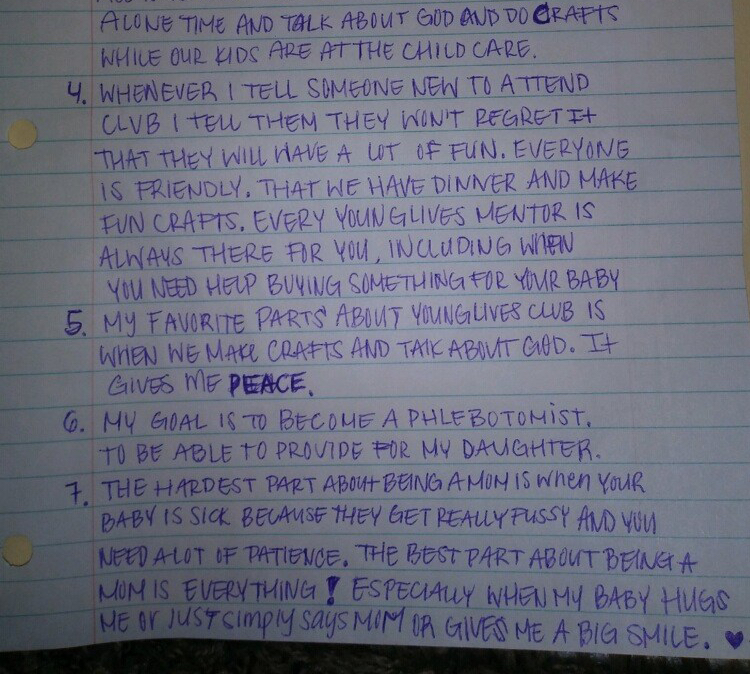 ALONE TIME AND TALK ABOUT GOD AND DO CRAFTS
WHILE OUR KIDS ARE AT THE CHILD CARE.
4. WHENEVER I TELL SOMEONE NEW TO ATTEND
CLUB I TELL THEM THEY WON'T REGRET It
THAT THEY WILL HAVE A LOT OF FUN. EVERYONE
IS FRIENDLY. THAT WE HAVE DINNER AND MAKE
FUN CRAFTS. EVERY YOUNGLIVES MENTOR IS
ALWAYS THERE FOR YOU, INCLUDING WHEN
YOU NEED HELP BUYING SOMETHING FOR YOUR BABY
5. MY FAVORITE PARTS ABOUT YOUNGLIVES CLUB IS
WHEN WE MAKE CRAFTS AND TALK ABOUT GOD. It
GIVES ME PEACE.
6. MY GOAL IS TO BECOME A PHLEBOTOMIST.
TO BE ABLE TO PROVIDE FOR MY DAUGHTER.
7. THE HARDEST PART ABOUt BEING A MOM IS when YOUR
BABY IS SICK BECAUSE THEY GET REALLY FUSSY AND YOU
NEED A LOT OF PATIENCE. THE BEST PART ABOUT BEING A
MOM IS EVERYTHING! ESPECIALLY WHEN MY BABY HUGS
ME Or JUST simply says MOM OR GIVES ME A BIG SMILE. ♥